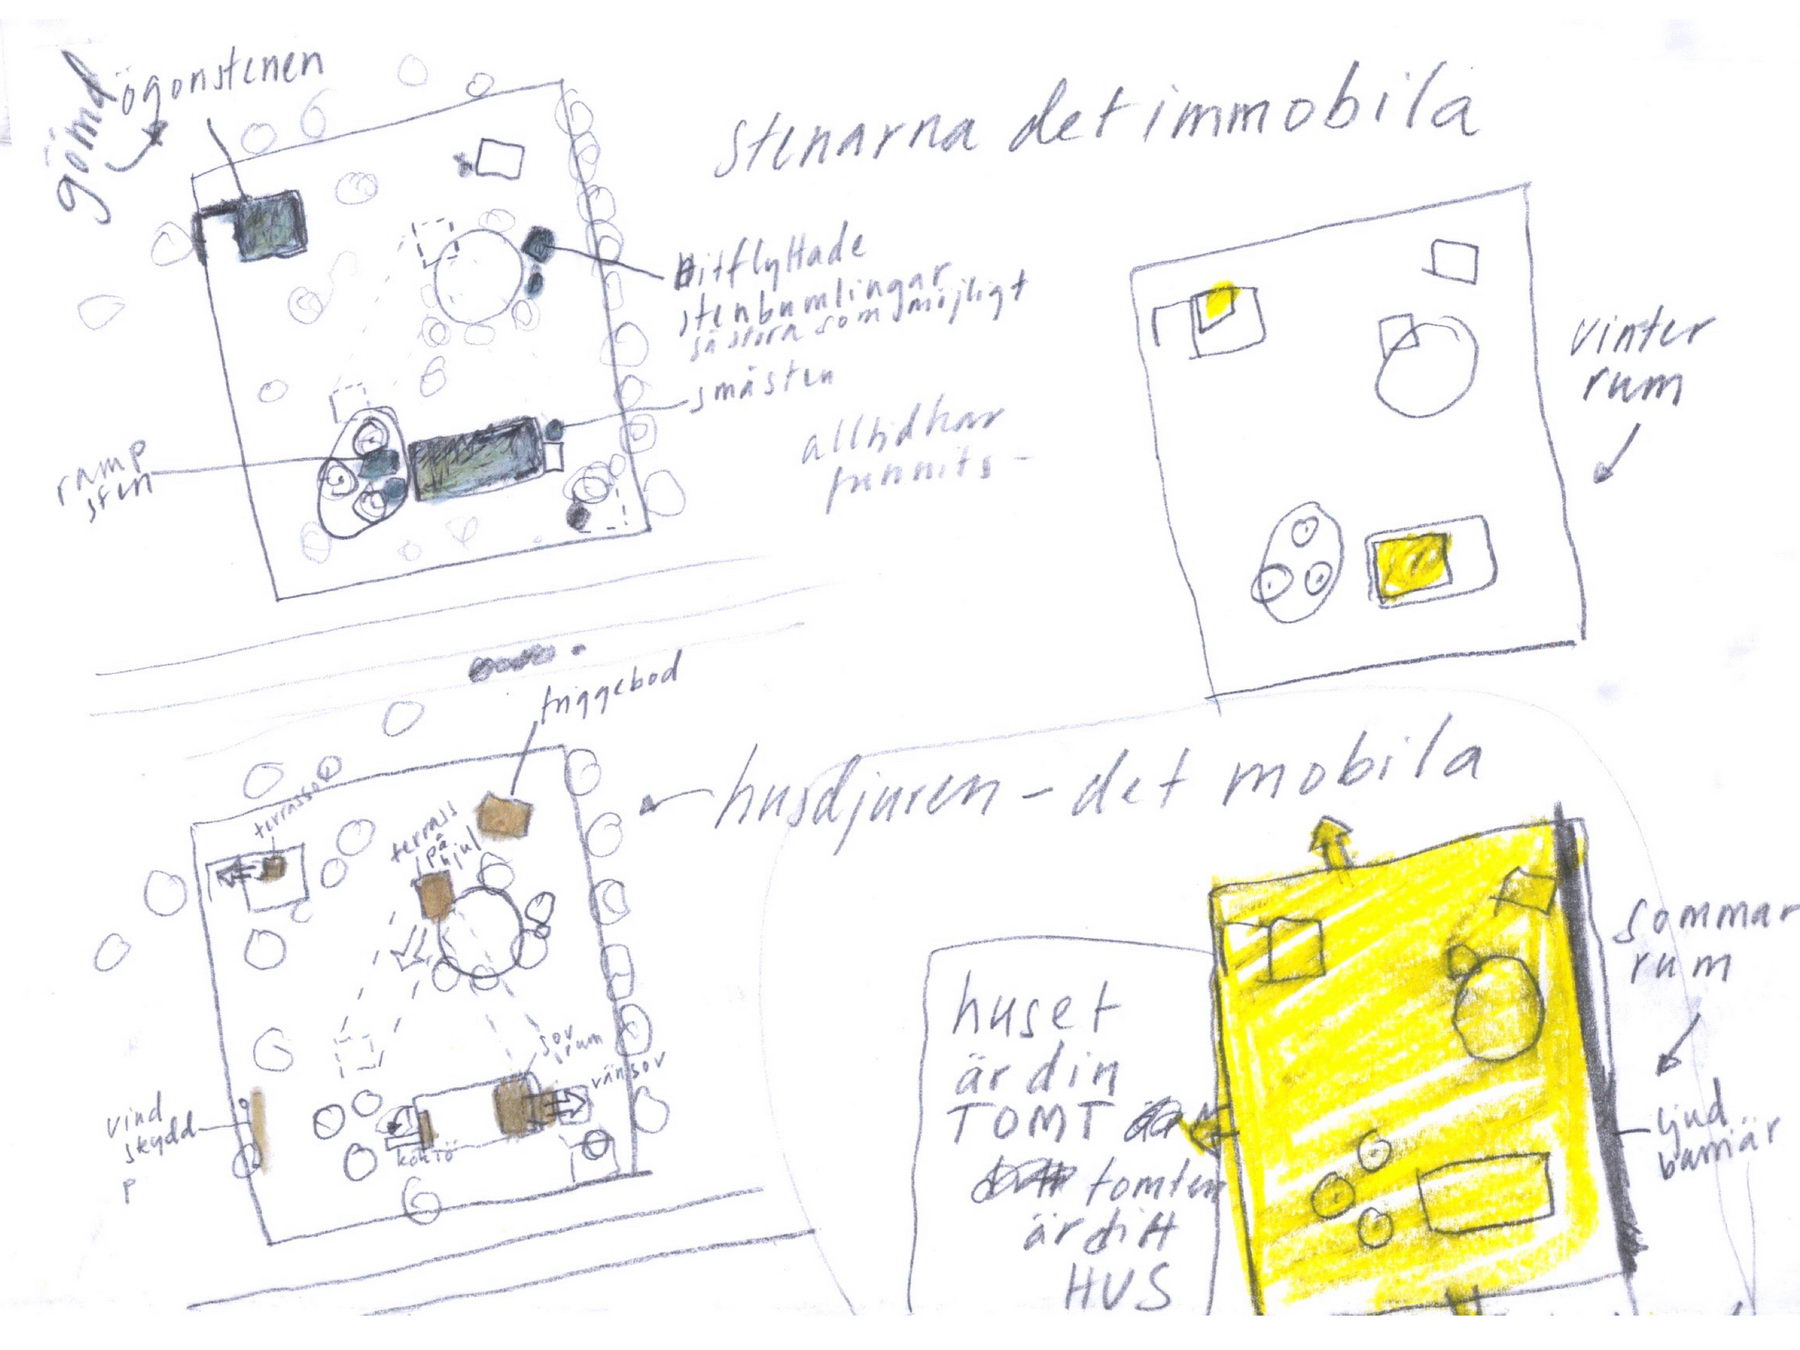 gömd
ögonstenen
stenarna det immobila
Ditflyttade
stenbumlingar
så stora som möjligt
småsten
alltid har
funnits -
ramp
sten
vinter
rum
friggebod
husdjuren - det mobila
terrass
terrass
på
hjul
sov
rum
vänsov
vind
skydd
kokö
huset
är din
TOMT
tomten
är ditt
HUS
sommar
rum
ljud
barriär